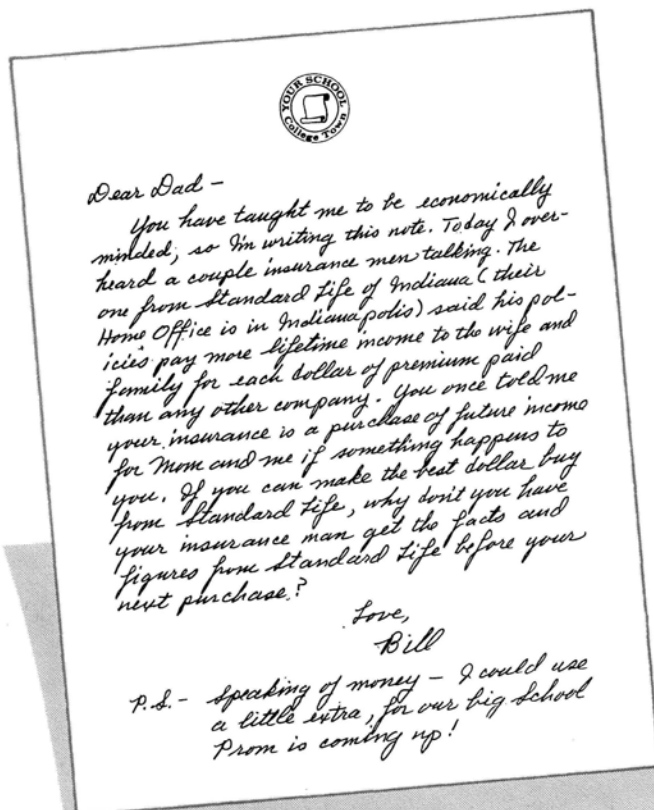 YOUR SCHOOL
College Town
Dear Dad -
You have taught me to be economically
minded, so I'm writing this note. Today I over-
heard a couple insurance men talking. The
one from Standard Life of Indiana (their
Home Office is in Indianapolis) said his pol-
icies pay more lifetime income to the wife and
family for each dollar of premium paid
than any other company. You once told me
your insurance is a purchase of future income
for Mom and me if something happens to
you. If you can make the best dollar buy
from Standard Life, why don't you have
your insurance man get the facts and
figures from Standard Life before your
next purchase?
Love,
Bill
P.S. - Speaking of money - I could use
a little extra, for our big School
Prom is coming up!